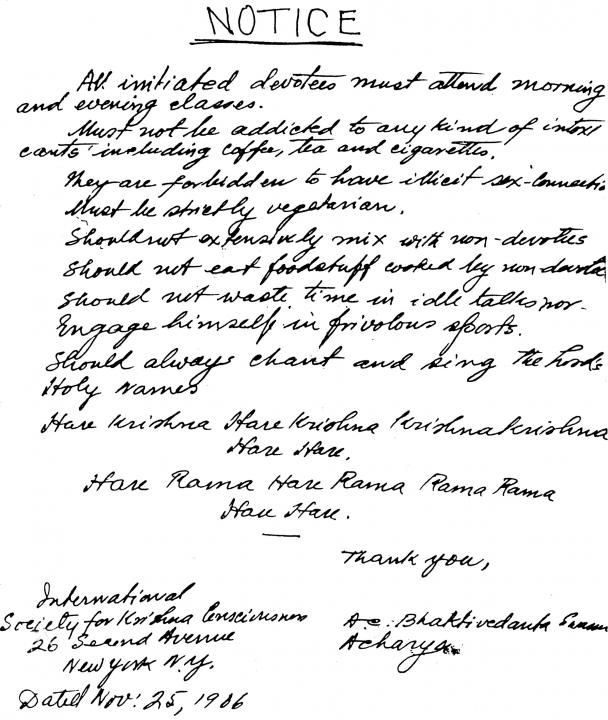 NOTICE
All initiated devotees must attend morning
and evening classes.
Must not be addicted to any kind of intoxi
cants including coffee, tea and cigarettes.
They are forbidden to have illicit sex-connectio
Must be strictly vegetarian.
Should not extensively mix with non-devotees
Should not eat foodstuff cooked by non devotee
Should not waste time in idle talks nor-
Engage himself in frivolous sports.
Should always chant and sing the Lord's
Holy Names
Hare Krishna Hare Krishna Krishna Krishna
Hare Hare.
Hare Rama Hare Rama Rama Rama
Hare Hare.
Thank you,
International
Society for Krishna Consciousness
26 Second Avenue
New York N.Y.
Dated Nov: 25, 1966
A.C. Bhaktivedanta Swami
Acharya